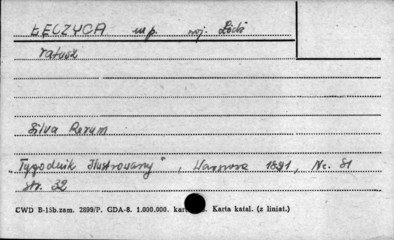 ŁĘCZYCA m.p. woj. Łódź
ratusz
Silva Rerum
"Tygodnik Ilustrowany", Warszawa 1891, Nr. 81
str. 32
CWD B-15b.zam. 2899/P. GDA-8. 1.000.000. Karta katal. (z liniat.)